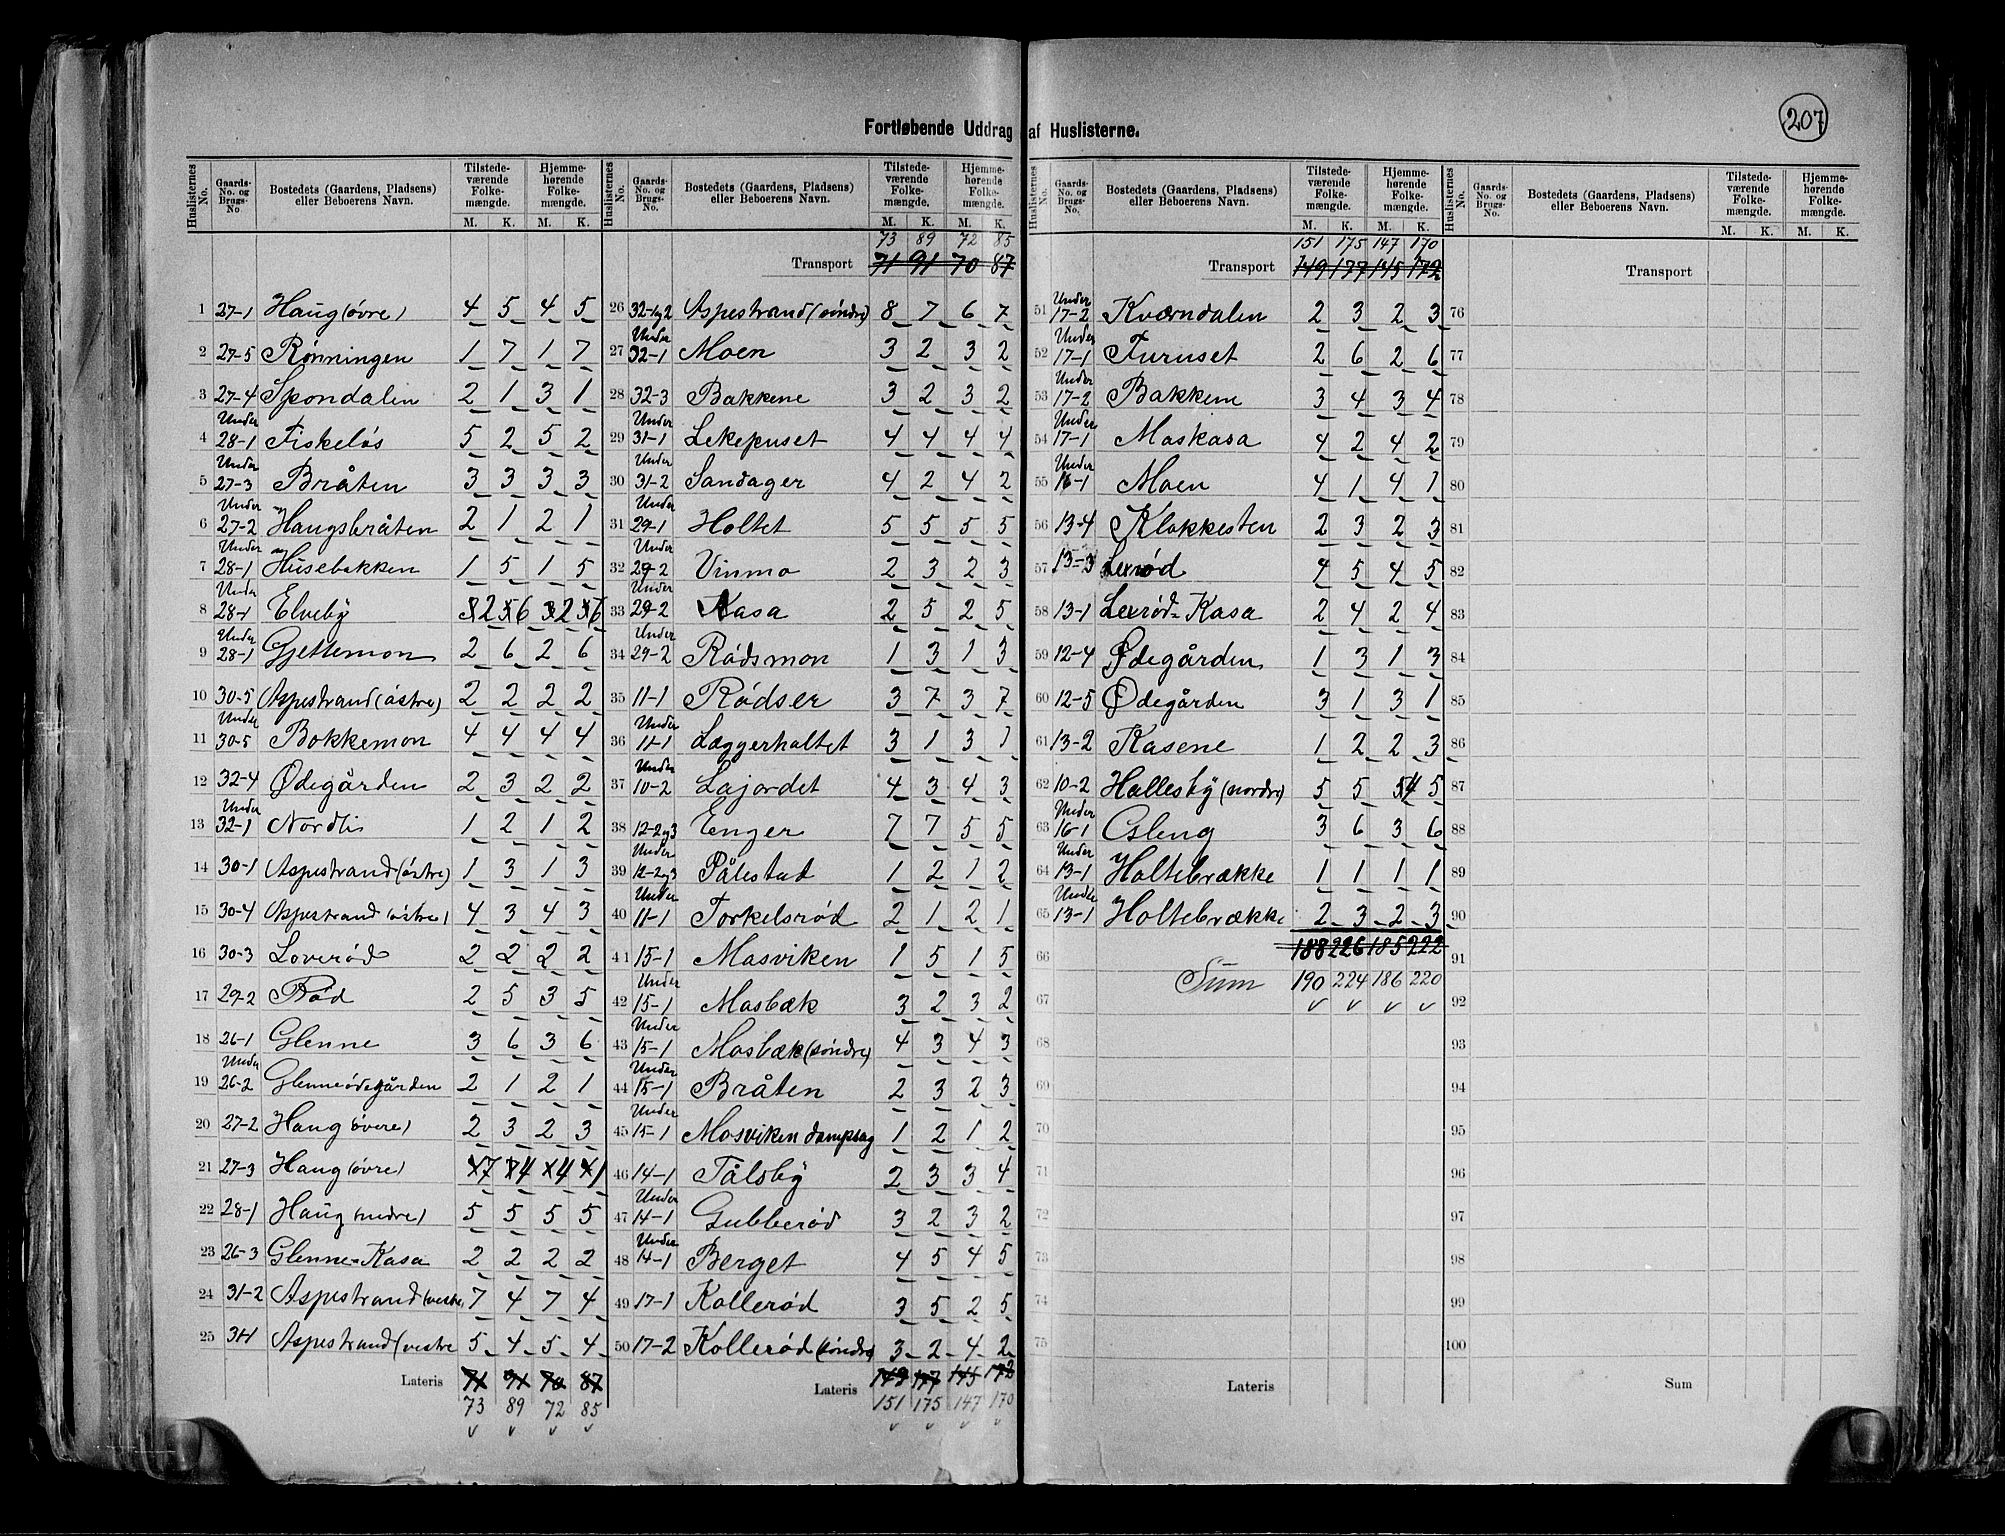 207
Fortløbende Uddrag af Huslisterne.
Huslisternes No. Gaards-No. og Brugs-No. Bostedets (Gaardens, Pladsens) eller Beboerens Navn. Tilstedeværende Folkemængde. M. K. Hjemmehørende Folkemængde. M. K.
1 27-1 Haug (øvre) 4 5 4 5
2 27-5 Rønningen 1 7 1 7
3 27-4 Spondalen 2 1 3 1
4 Under 28-1 Fiskeløs 5 2 5 2
5 Under 27-3 Bråten 3 3 3 3
6 Under 27-2 Haugsbråten 2 1 2 1
7 Under 28-1 Husebakken 1 5 1 5
8 Under 28-1 Elveby 2 6 2 6
9 Under 28-1 Gjettemon 2 6 2 6
10 30-5 Aspestrand (östre) 2 2 2 2
11 Under 30-5 Bakkemon 4 4 4 4
12 32-4 Ødegården 2 3 2 2
13 Under 32-1 Nordli 1 2 1 2
14 30-1 Aspestrand (östre) 1 3 1 3
15 30-4 Aspestrand (östre) 4 3 4 3
16 30-3 Loverød 2 2 2 2
17 29-2 Rød 2 5 3 5
18 26-1 Glenne 3 6 3 6
19 Under 26-2 Glenneödegården 2 1 2 1
20 27-2 Haug (øvere) 2 3 2 3
21 27-3 Haug (øvre) 7 4 4 1
22 28-1 Haug (nedre) 5 5 5 5
23 26-3 Glenne-Kasa 2 2 2 2
24 31-2 Aspestrand (vestre) 7 4 7 4
25 31-1 Aspestrand (vestre 5 4 5 4
Lateris 71 91 70 87
73 89 72 85
Huslisternes No. Gaards-No. og Brugs-No. Bostedets (Gaardens, Pladsens) eller Beboerens Navn. Tilstedeværende Folkemængde. M. K. Hjemmehørende Folkemængde. M. K.
73 89 72 85
Transport 71 91 70 87
26 32-1og2 Aspestrand (söndre) 8 7 6 7
27 Under 32-1 Moen 3 2 3 2
28 32-3 Bakkene 3 2 3 2
29 Under 31-1 Lekepuset 4 4 4 4
30 Under 31-2 Sandager 4 2 4 2
31 Under 29-1 Holtet 5 5 5 5
32 Under 29-2 Vinmo 2 3 2 3
33 Under 29-2 Kasa 2 5 2 5
34 Under 29-2 Rødsmon 1 3 1 3
35 11-1 Rødser 3 7 3 7
36 Under 11-1 Læggerholtet 3 1 3 1
37 Under 10-2 Lajordet 4 3 4 3
38 12-2og3 Enger 7 7 5 5
39 Under 12-2og3 Pålestad 1 2 1 2
40 Under 11-1 Torkelsrød 2 1 2 1
41 15-1 Mosviken 1 5 1 5
42 Under 15-1 Mosbæk 3 2 3 2
43 Under 15-1 Mosbæk (söndre) 4 3 4 3
44 Under 15-1 Bråten 2 3 2 3
45 Under 15-1 Mosviken dampsag 1 2 1 2
46 14-1 Tålsby 2 3 3 4
47 Under 14-1 Gubberød 3 2 3 2
48 Under 14-1 Berget 4 5 4 5
49 17-1 Kollerød 3 5 2 5
50 17-2 Kollerød (söndre) 3 2 4 2
Lateris 149 177 145 172
151 175 147 170
Huslisternes No. Gaards-No. og Brugs-No. Bostedets (Gaardens, Pladsens) eller Beboerens Navn. Tilstedeværende Folkemængde. M. K. Hjemmehørende Folkemængde. M. K.
151 175 147 170
Transport 149 177 145 172
51 Under 17-2 Kværndalen 2 3 2 3
52 Under 17-1 Furuset 2 6 2 6
53 Under 17-2 Bakken 3 4 3 4
54 Under 17-1 Moskasa 4 2 4 2
55 Under 16-1 Moen 4 1 4 1
56 13-4 Klokkesten 2 3 2 3
57 13-3 Lexrød 4 5 4 5
58 13-1 Lexrød-Kasa 2 4 2 4
59 12-4 Ødegården 1 3 1 3
60 12-5 Ødegården 3 1 3 1
61 13-2 Kasene 1 2 2 3
62 10-2 Hallesby (nordre) 5 5 4 5
63 Under 16-1 Csleng 3 6 3 6
64 Under 13-1 Holtebrække 1 1 1 1
65 Under 13-1 Holtebrække 2 3 2 3
66 188 226 185 222
Sum 190 224 186 220
67
68
69
70
71
72
73
74
75
Lateris
Huslisternes No. Gaards-No. og Brugs-No. Bostedets (Gaardens, Pladsens) eller Beboerens Navn. Tilstedeværende Folkemængde. M. K. Hjemmehørende Folkemængde. M. K.
Transport
76
77
78
79
80
81
82
83
84
85
86
87
88
89
90
91
92
93
94
95
96
97
98
99
100
Sum